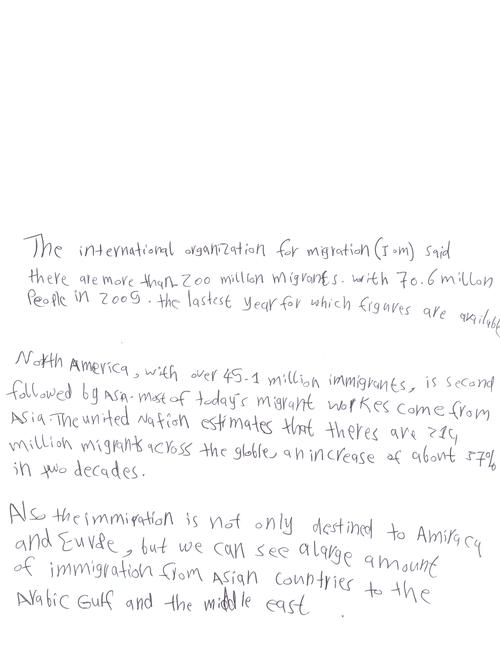 The international organization for migration (Iom) said
there are more than 200 million migrants. with 70.6 millon
People in 2005. the lastest year for which figures are available
North America, with over 45.1 million immigrants, is second
followed by Asia. most of today's migrant workes come from
Asia. The united Nation estimates that theres are 214
million migrants across the globle, an increase of about 37%
in two decades.
Also the immigration is not only destined to Amiracy
and Eurde, but we can see a large amount
of immigration from Asian countries to the
Arabic Gulf and the middle east.